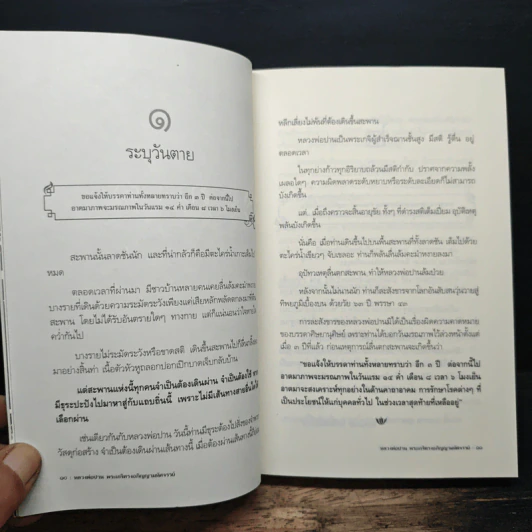 ๑
ระบุวันตาย
ขอแจ้งให้บรรดาท่านทั้งหลายทราบว่า อีก ๓ ปี ต่อจากนี้ไป
อาตมาภาพจะมรณภาพในวันแรม ๑๔ ค่ำ เดือน ๘ เวลา ๖ โมงเย็น
สะพานนั้นลาดชันนัก และที่น่ากลัวก็คือมีตะไคร่น้ำเกาะ
หมด
ตลอดเวลาที่ผ่านมา มีชาวบ้านหลายคนเคยลื่นล้มตะ
บางรายที่เดินด้วยความระมัดระวังเพียงแค่เสียหลักพลัดตกลงมา
สะพาน โดยไม่ได้รับอันตรายใดๆ ทางกาย แต่ก็แน่นอนว่า
คว่ำกันไป
บางรายไม่ระมัดระวังหรือขาดสติ เดินขึ้นสะพานไป
มาอย่างลิ่นท่า เนื้อตัวหัวหูถลอกปอกเปิกบาดเจ็บกลับบ้าน
แต่สะพานแห่งนี้ทุกคนจำเป็นต้องเดินผ่าน จำเป็นต้องใช้
มีธุระปะปังไปมาหาสู่กันแถบถิ่นนี้ เพราะไม่มีเส้นทางสายอื่นให้
เลือกผ่าน
เช่นเดียวกันกับหลวงพ่อปาน วันนี้ท่านมีธุระต้องไปสั่งของ
วัสดุก่อสร้าง จำเป็นต้องเดินผ่านเส้นทางนี้ เมื่อต้องผ่านเส้นทางนี้
๑๐ : หลวงพ่อปาน พระอริยะผู้
หลีกเลี่ยงไม่พ้นที่ต้องเดินขึ้นสะพาน
หลวงพ่อปานเป็นพระเกจิผู้สำเร็จฌานชั้นสูง มีสติ รู้ตื่น อยู่
ตลอดเวลา
ในทุกย่างก้าวทุกอิริยาบถล้วนมีสติกำกับ ปราศจากความพลั้ง
เผลอใดๆ ความผิดพลาดระดับหยาบหรือระดับละเอียดก็ไม่สามารถ
บังเกิดขึ้น
แต่...เมื่อถึงคราวจะสิ้นอายุขัย ทั้งๆ ที่ดำรงสติเต็มเปี่ยม อุบัติเหตุ
พลันบังเกิดขึ้น
นั่นคือ เมื่อท่านเดินขึ้นไปบนพื้นสะพานที่ทั้งลาดชัน เต็มไปด้วย
ตะไคร่น้ำเขียวๆ จับเขลอะ ท่านก็พลันลื่นล้มตะม้าหงายลงมา
อุบัติเหตุลื่นตกสะพาน ทำให้หลวงพ่อปานล้มป่วย
หลังจากนั้นไม่นานนัก ท่านก็ละสังขารจากโลกอันสับสนวุ่นวายสู่
ทิพยภูมิเบื้องบน ด้วยวัย ๖๓ ปี พรรษา ๔๓
การละสังขารของหลวงพ่อปานมิได้เป็นเรื่องผิดความคาดหมาย
ของบรรดาศิษยานุศิษย์ เพราะท่านได้บอกวันมรณภาพไว้ล่วงหน้าตั้งแต่
เมื่อ ๓ ปีที่แล้ว ก่อนเหตุการณ์ลื่นตกสะพานจะเกิดขึ้นว่า
"ขอแจ้งให้บรรดาท่านทั้งหลายทราบว่า อีก ๓ ปี ต่อจากนี้ไป
อาตมาภาพจะมรณภาพในวันแรม ๑๔ ค่ำ เดือน ๘ เวลา ๖ โมงเย็น
อาตมาจะสงเคราะห์ทุกอย่างในด้านคาถาอาคม การรักษาโรคต่างๆ ที่
เป็นประโยชน์ให้แก่บุคคลทั่วไป ในช่วงเวลาสุดท้ายที่เหลืออยู่"